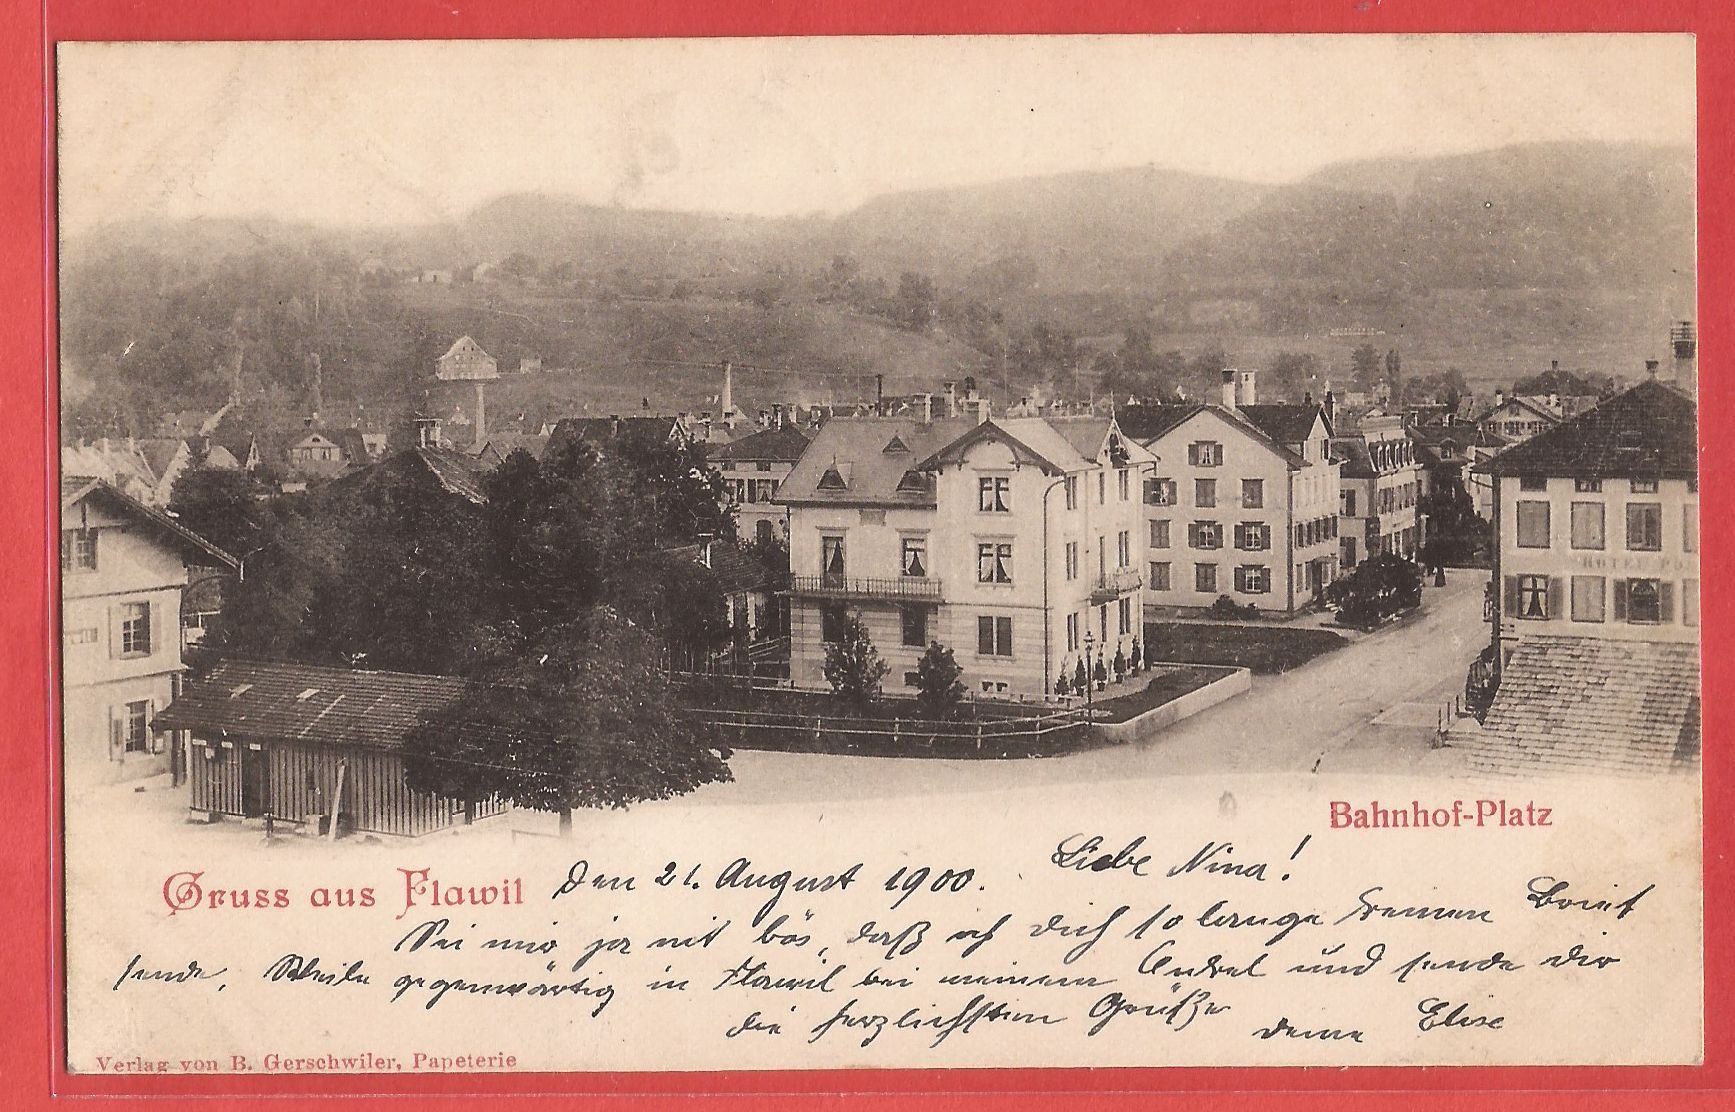 HOTEL PO
Bahnhof-Platz
Gruss aus Flawil
Den 21. August 1900. Liebe Nina!
Sei mir ja nit bös, daß ich dich so lange keinen Brief
sende. Weile gegenwärtig in Flawil bei meinem Onkel und sende dir
die herzlichsten Grüße deine Elise
Verlag von B. Gerschwiler, Papeterie